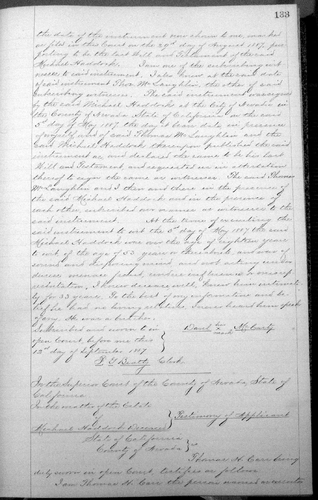 133
the date of the instrument now shown to me, marked
as filed in this Court on the 29th day of August 1887, pur-
porting to be the last Will and Testament of the said
Michael Haddock. I am one of the subscribing wit-
nesses to said instrument. I also knew at the said date
of said instrument Thos. McLaughlin the other of said
subscribing witnesses. The said instrument was signed
by the said Michael Haddock at the City of Nevada in
the County of Nevada State of California on the said
3d day of May 1887 the day it bears date, in presence
of myself and of said Thomas McLaughlin and the
said Michael Haddock thereupon published the said
instrument as, and declared the same to be his last
Will and Testament and requested us in attestation
thereof to sign the same as witnesses. The said Thomas
McLaughlin and I then and there in the presence of
the said Michael Haddock and in the presence of
each other, subscribed our names as witnesses to the
said instrument. At the time of executing the
said instrument to wit the 3d day of May 1887 the said
Michael Haddock was over the age of eighteen years
to wit of the age of 53 years or thereabouts, and was of
sound and disposing mind and not acting under
duress, menace, fraud, undue influence or misrep-
resentation, I knew deceased well, knew him intimate-
ly for 33 years. To the best of my information and be-
lief he had no living relatives. I never heard him speak
I am
Subscribed and sworn to in
open Court, before me this
12th day of September 1887
David McCarty
Clerk
In the Superior Court of the County of Nevada, State of
California
In the matter of the Estate
of
Michael Haddock Deceased
Testimony of Applicant
State of California
County of Nevada ss
Thomas H. Carr being
duly sworn in open Court, testifies as follows
I am Thomas H. Carr the person named as executor